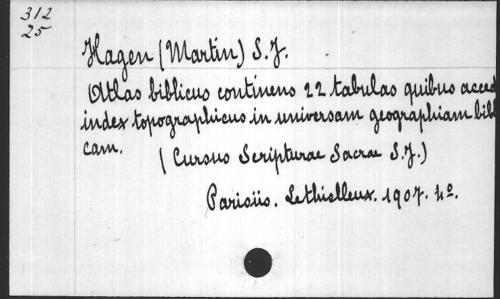 312
25
Hagen (Martin) S.J.
Atlas biblicus continens 22 tabulas quibus acced
index topographicus in universam geographiam bibl
cam.
(Cursus Scripturae Sacrae S.J.)
Parisiis. Lethielleux. 1907. 4º.